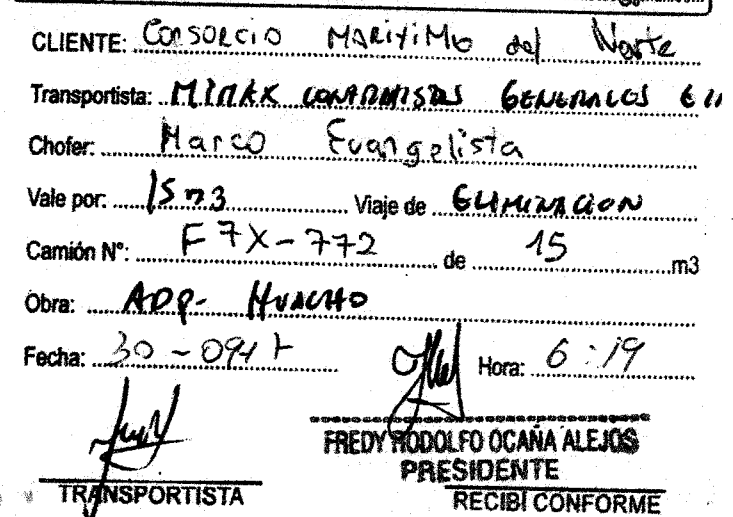 CLIENTE: Consorcio Marítimo del Norte
Transportista: MINAK CONTRATISTAS GENERALES
Chofer: Marco Evangelista
Vale por: 15 m3 Viaje de ELIMINACION
Camión N°: F7X-772 de 15 m3
Obra: ADP- HUACHO
Fecha: 30-09
Hora: 6:19
FREDY RODOLFO OCAÑA ALEJOS
PRESIDENTE
TRANSPORTISTA
RECIBI CONFORME